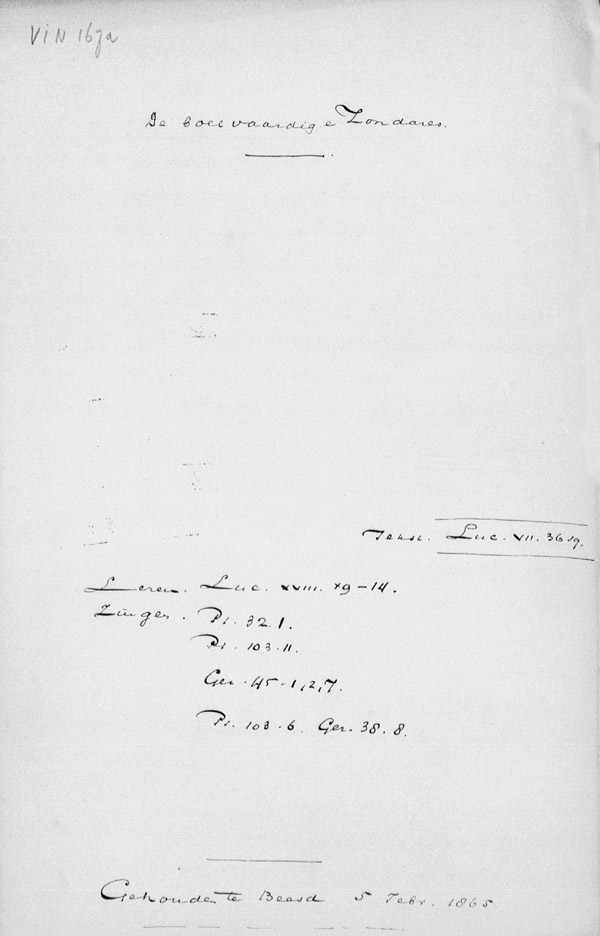 VIN 167a
De boetvaardige Zondares.
Tekst. Luc. VII. 36 sq.
Lezen. Luc. XVIII. 9-14.
Zingen. Ps. 32. 1.
Ps. 103. 11.
Gez. 45-1,2,7.
Ps. 103. 6. Gez. 38. 8.
Gehouden te Beesd 5 Febr. 1865